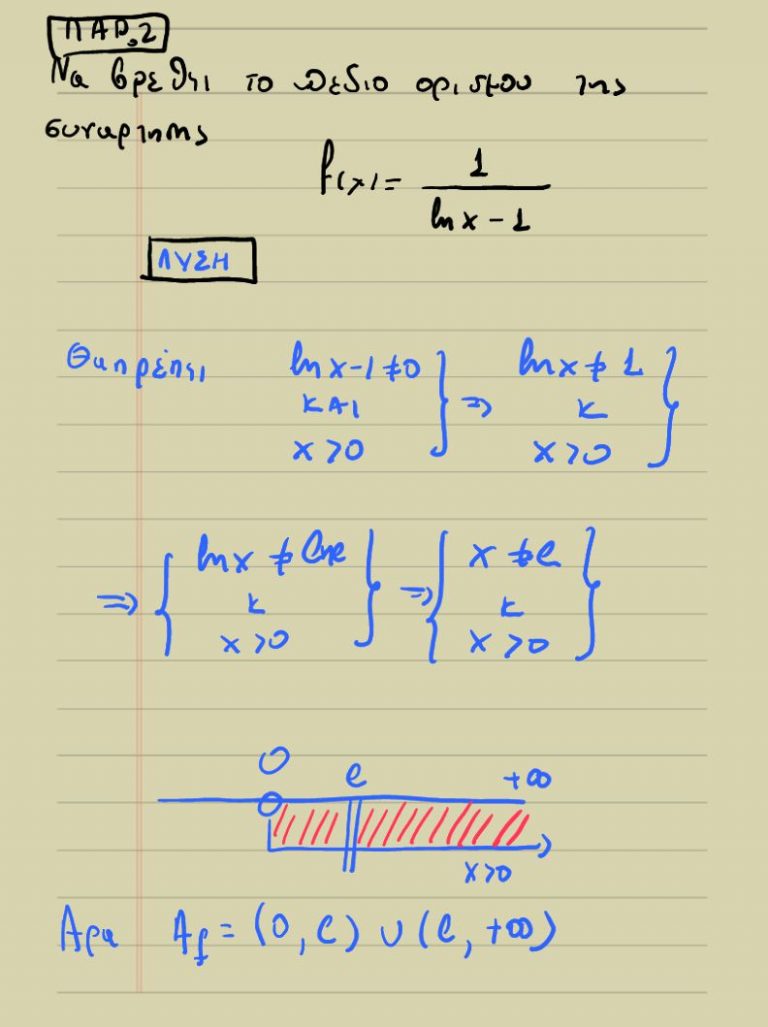 ΠΑΡ.2
Να βρεθει το πεδιο ορισμου της
συναρτησης
f(x) = 1 / (ln x - 1)
ΛΥΣΗ
Θα πρέπει ln x - 1 ≠ 0 } ⇒ ln x ≠ 1 }
ΚΑΙ κ
x > 0 x > 0
⇒ { ln x ≠ ln e } ⇒ { x ≠ e }
κ κ
x > 0 x > 0
0 e +∞
x > 0
Αρα Af = (0, e) ∪ (e, +∞)